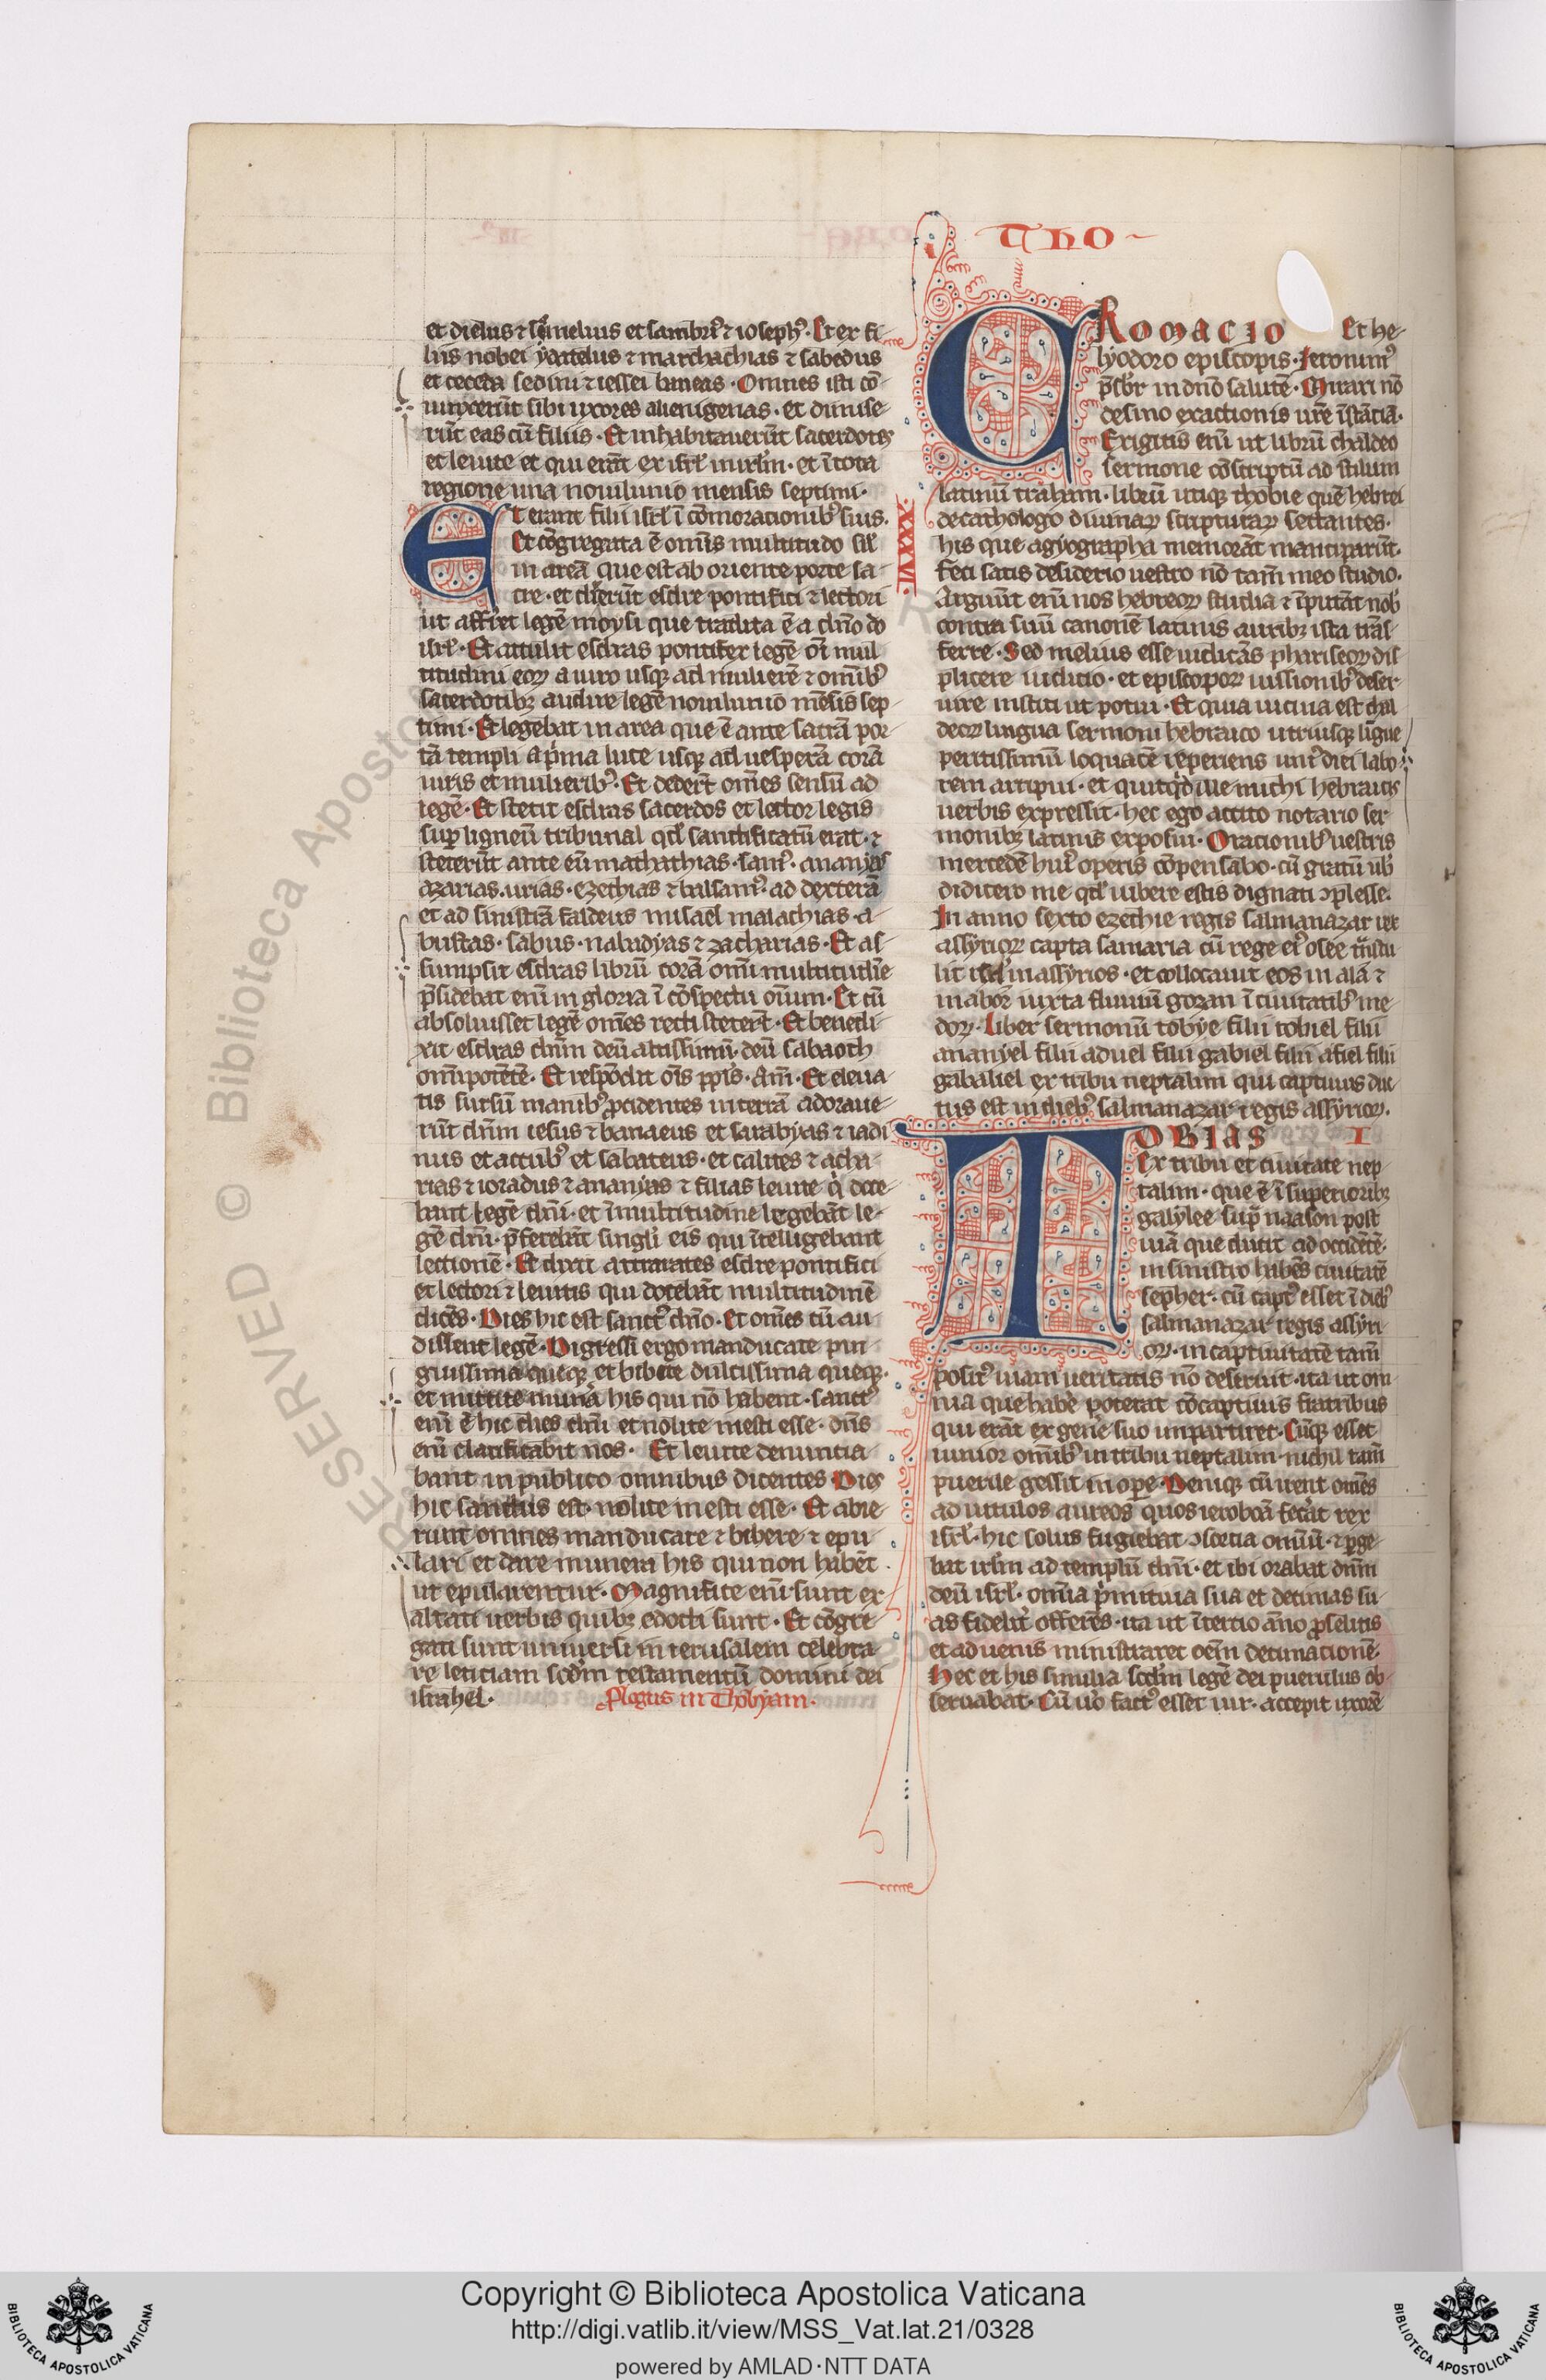 Tho
et dielus ⁊ semelius et sambri᷒ ⁊ ioseph᷒. Et ex fi
liis nobei ydatelus ⁊ matthathias ⁊ sabedus
et ceceda sedimi ⁊ iessei baneas. Omnes isti cō
iunxerūt sibi uxores alienigenas. et dimise
rūt eas cū filiis. Et inhabitauerūt sacerdotes
et leuite et qui erāt ex isrl' in irl'm. et ī tota
regione una nouilunio mensis septimi.
Et erant filii isrl' ī cōmoracionib᷒ suis. XXXVI.
Et cōgregata ē omīs multitudo sil'
in areā que est ab oriente porte sa
cre. et dixerūt esdre pontifici ⁊ lectori
ut affr̄et legē moysi que tradita ē a dn̄o do
isrl'. Et attulit esdras pontifex legē oī mul
titudini eoꝝ a uiro usqꝫ ad mulierē ⁊ omīb᷒
sacerdotibꝫ audire legē nouilunio mēsis sep
timi. Et legebat in area que ē ante sacrā por
tā templi a pͥma luce usqꝫ ad uesperā corā
uiris et mulierib᷒. Et dedert̄ om̄es sensū ad
legē. Et stetit esdras sacerdos et lector legis
sup ligneū tribunal qd' sanctificatū erat. ⁊
steterūt ante eū mathathias. sam᷒. ananyas
azarias. urias. ezechias ⁊ balsam᷒. ad dexterā
et ad sinistrā faldeus misael malachias. a
bustas. sabus. nabadyas ⁊ zacharias. Et as
sumpsit esdras librū corā omī multitudīe
p̄sidebat enī in gloria ī cōspectu oīum. Et cū
absoluisset legē om̄es recti stetert̄. Et benedi
xit esdras dn̄m deū altissimū. deū sabaoth
omīpotētē. Et respōdit oīs ppl's. Am̄. Et eleua
tis sursū manib᷒ ꝓcidentes in terrā adoraue
rūt dn̄m iesus ⁊ banaeus et sarabyas ⁊ iadi
mus et accub᷒ et sabateus. et calites ⁊ acha
rias ⁊ ioradus ⁊ ananyas ⁊ filias leuite qͥ doce
bant legē dn̄i. et ī multitudine legebāt le
gē dn̄i. p̄ferebāt singl'i eis qui ītelligebant
lectionē. Et dixit atrarates esdre pontifici
et lectori ⁊ leuitis qui docebāt multitudinē
dicēs. Dies hic est sanct᷒ dn̄o. Et om̄es cū au
dissent legē. Digressi ergo manducate pin
guissima queqꝫ et bibite dulcissima queqꝫ.
et mittite munͣa his qui nō habent. sanct᷒
enī ē hic dies dn̄i et nolite mesti esse. dn̄s
enī clarificabit nos. Et leuite denuncia
bant in publico omnibus dicentes Dies
hic sanctus est nolite mesti esse. Et abie
runt omnes manducare ⁊ bibere ⁊ epu
lari et dare munera his qui non habēt
ut epularentur. Magnifice enī sunt ex
altati uerbis quibꝫ edocti sunt. Et cōgre
gati sunt uniuersi in ierusalem celebra
re leticiam scd'm testamentū domini dei
israhel. Plogus in Thobyam.
CRomacio Et he
lyodoro episcopis. Ieronim᷒
p̄sb'r in dn̄o salutē. Mirari nō
desino exactionis urē īstāciā.
Exigitis enī ut librū chaldeo
sermone cōscriptū ad stilum
latinū traham. librū utiqꝫ thobie quē hebrei
de cathologo diuinaꝝ scripturaꝝ sectantes.
his que agyographa memorāt manciparūt.
Feci satis desiderio uestro nō tam̄ meo studio.
Arguūt enī nos hebreoꝝ studia ⁊ īputāt nob᷒
contra suū canonē latinis auribꝫ ista trās
ferre. Sed melius esse iudicās phariseoꝝ dis
plicere iudicio. et episcopoꝝ iussionib᷒ deser
uire institi ut potui. Et quia uicina est chal
deoꝝ lingua sermoni hebraico utriusqꝫ ligue
peritissimū loquacē reperiens uni᷒ diei labo
rem arripui. et quitqd' ille michi hebraicis
uerbis expressit. hec ego accito notario ser
monibꝫ latinis exposui. Oracionib᷒ uestris
mercedē hui᷒ operis cōpensabo. cū gratū ub᷒
didicero me qd' iubere estis dignati ꝯplesse.
In anno sexto ezechie regis salmanazar rex
assyrioꝝ capta samaria cū rege ei᷒ osee trāstu
lit isrl' in assyrios. et collocauit eos in ala ⁊
in abor iuxta fluuiū gozan ī ciuitatib᷒ me
doꝝ. Liber sermonū tobye filii tobiel filii
ananyel filii aduel filii gabiel filii asiel filii
gabaliel ex tribu neptalim qui captiuus duc
tus est in dieb᷒ salmanazar regis assyrioꝝ.
TOBIAS I
Ex tribu et ciuitate nep
talim. que ē ī superioribꝫ
galylee sup̄ naason post
uiā que ducit ad occidētē.
in sinistro habēs ciuitatē
sepher. cū capt᷒ esset ī dieb᷒
salmanazar regis assyri
oꝝ. in captiuitate tam̄
posit᷒ uiam ueritatis nō deseruit. ita ut om
nia que habē poterat cōcaptiuis fratribus
qui erāt ex genē suo impartiret. Cūqꝫ esset
iunior omīb᷒ in tribu neptalim. nichil tam̄
puerile gessit in ope. Deniqꝫ cū irent om̄es
ad uitulos aureos quos ieroboā fecͣat rex
isrl'. hic solus fugiebat ꝯsorcia omīū. ⁊ ꝑge
bat irl'm ad templū dn̄i. et ibi orabat dn̄m
deū isrl'. omīa pͥmitiuia sua et decimas su
as fidelit᷒ offerēs. ita ut ī tercio an̄o ꝓselitis
et aduenis ministraret oem̄ decimacionē.
Hec et his similia scd'm legē dei puerulus ob
seruabat. Cū uͦo fact᷒ esset uir. accepit uxorē
RESERVED © Biblioteca Aposto
Copyright © Biblioteca Apostolica Vaticana
http://digi.vatlib.it/view/MSS_Vat.lat.21/0328
powered by AMLAD·NTT DATA
BIBLIOTECA APOSTOLICA VATICANA
BIBLIOTECA APOSTOLICA VATICANA